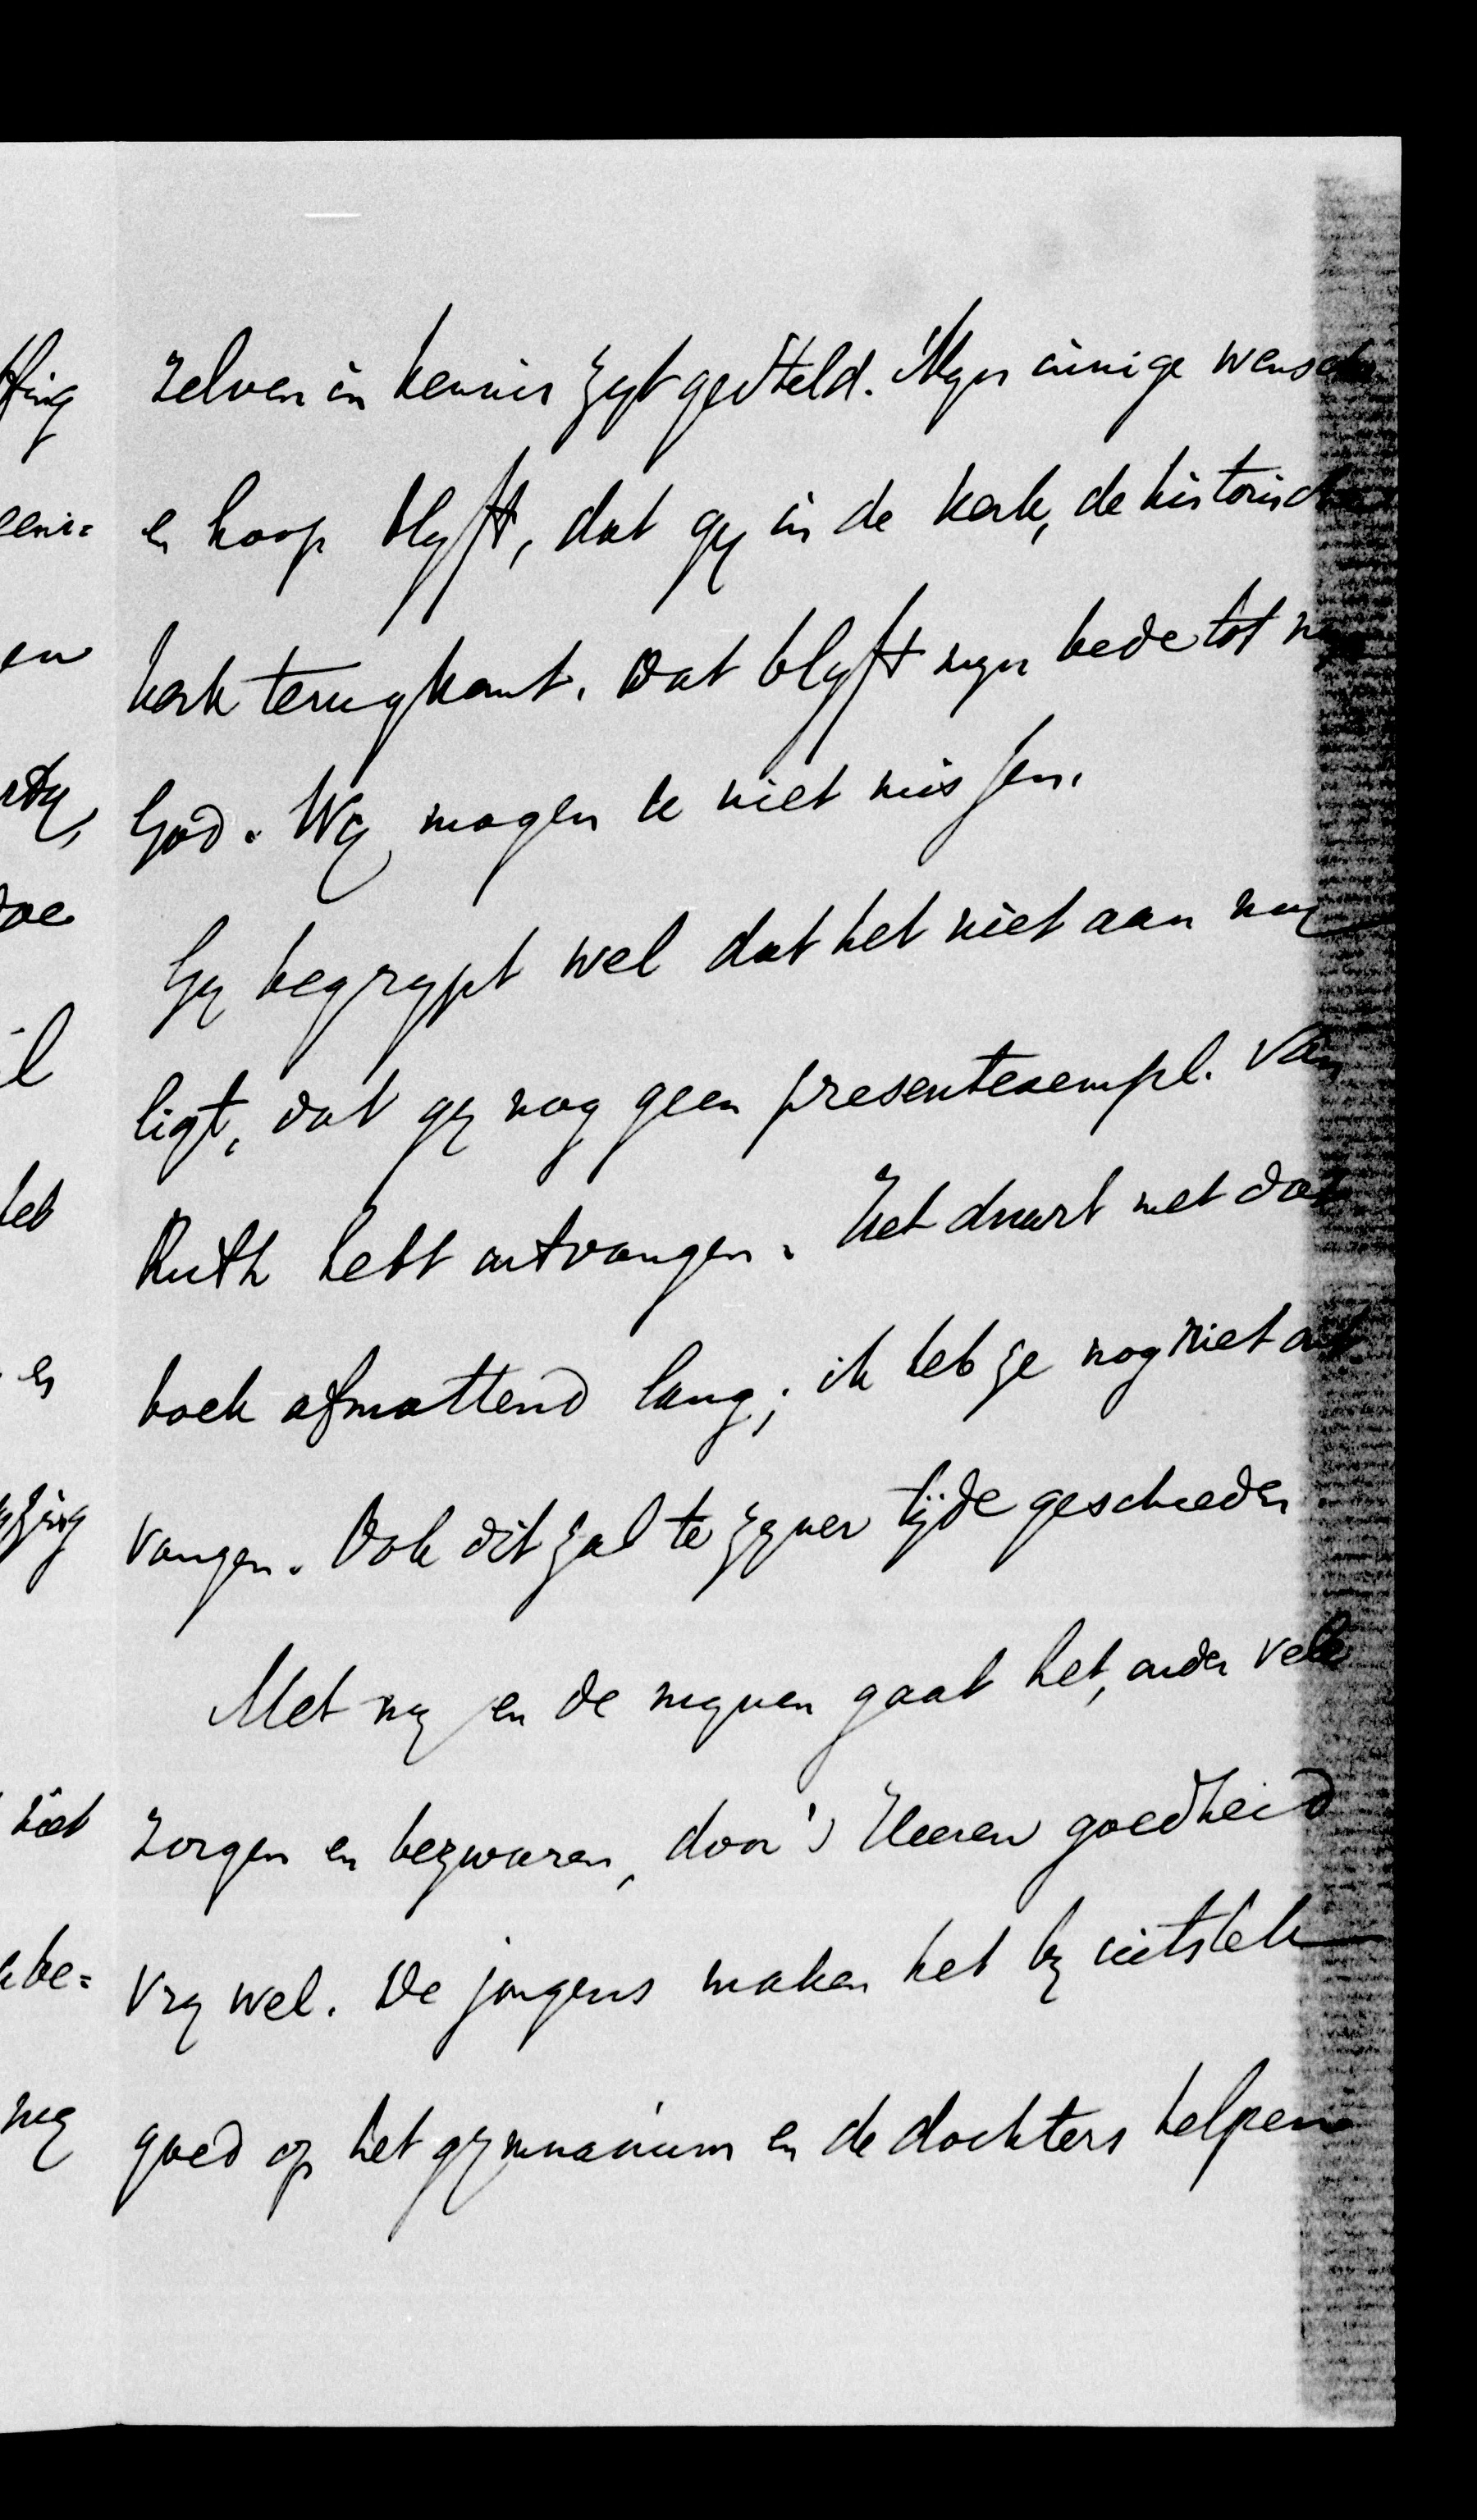 zelven in kennis zyt gesteld. Myn innige wensch
en hoop blyft, dat gy in de kerk, de historische
kerk terugkomt. Dat blyft myn bede tot myn
God. Wy mogen U niet missen.
Gy begrypt wel dat het niet aan my
ligt, dat gy nog geen presentexempl. van
Ruth hebt ontvangen. Het duurt met dat
boek afmattend lang; ik heb ze nog niet ont
vangen. Ook dit zal te zyner tyde geschieden
Met my en de mynen gaat het, onder vele
zorgen en bezwaren, door 's Heeren goedheid
vry wel. De jongens maken het by uitstek
goed op het gymnasium en de dochters helpen